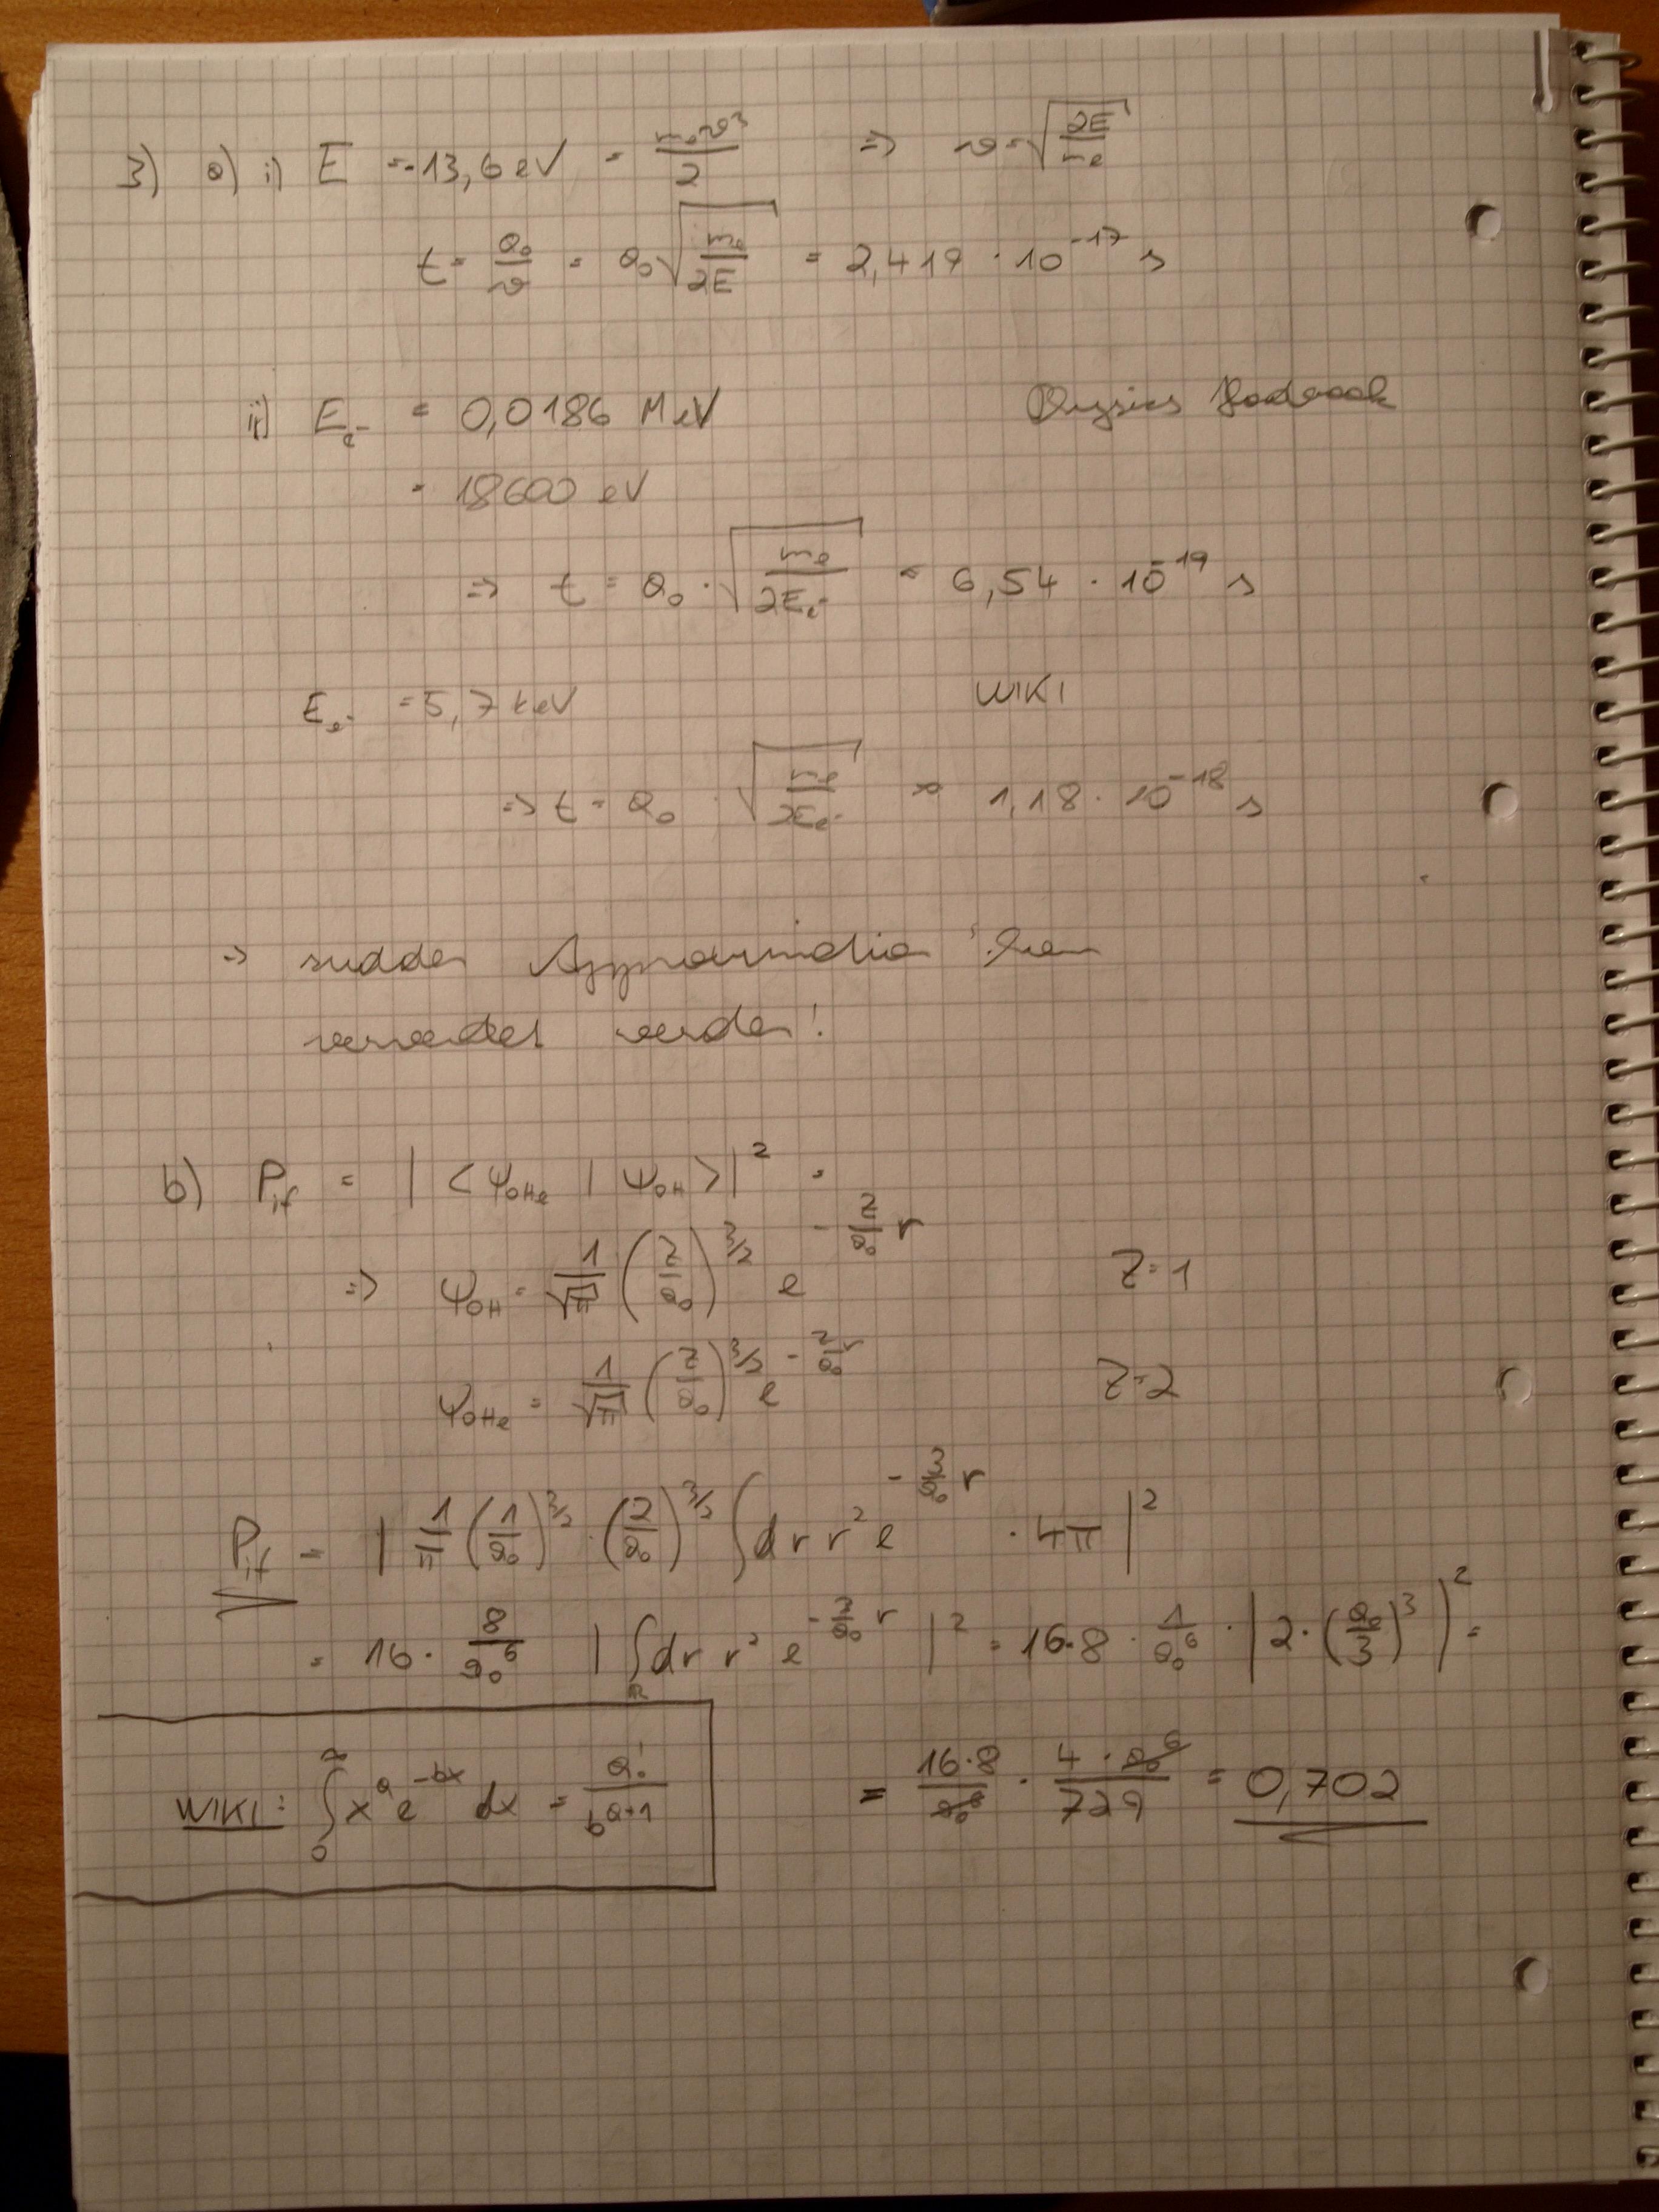 3) a) i) E = -13,6 eV = m_e v² / 2 => v = √(2E / m_e)
t = a₀ / v = a₀ √(m_e / 2E) = 2,419 · 10⁻¹⁷ s
ii) E_e⁻ = 0,0186 MeV Physics Handbook
= 18600 eV
=> t = a₀ · √(m_e / 2E_e⁻) = 6,54 · 10⁻¹⁹ s
E_e⁻ = 5,7 keV WIKI
=> t = a₀ · √(m_e / 2E_e⁻) = 1,18 · 10⁻¹⁸ s
=> sudden Approximation kann
verwendet werden!
b) P_if = |<ψ_0He | ψ_0H>|² =
=> ψ_0H = 1/√π (Z/a₀)^(3/2) e^(-Z/a₀ r) Z=1
ψ_0He = 1/√π (Z/a₀)^(3/2) e^(-Z/a₀ r) Z=2
P_if = | 1/π (1/a₀)^(3/2) · (2/a₀)^(3/2) ∫ dr r² e^(-3/a₀ r) · 4π |²
= 16 · 8/a₀⁶ | ∫ dr r² e^(-3/a₀ r) |² = 16·8 · 1/a₀⁶ · | 2 · (a₀/3)³ |² =
= 16·8 / a₀⁶ · 4 · a₀⁶ / 729 = 0,702
WIKI: ∫₀^∞ x^a e^(-bx) dx = a! / b^(a+1)